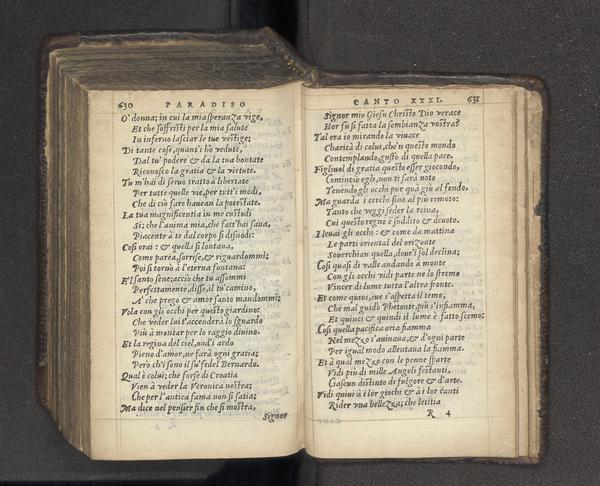 630 PARADISO
O' donna; in cui la mia speranza vige,
Et che soffristi per la mia salute
In inferno lasciar le tue vestige;
Di tante cose, quant'i hò vedute,
Dal tu' podere & da la tua bontate
Riconosco la gratia & la virtute.
Tu m'hai di seruo tratto à libertate
Per tutte quelle vie, per tutt'i modi,
Che di ciò fare haueàn la potestate.
La tua magnificentia in me custodi
Sì; che l'anima mia, che fatt'hai sana,
Piacente à te dal corpo si disnodi:
Così orai: & quella sì lontana,
Come parea, sorrise, & riguardommi;
Poi si tornò à l'eterna fontana:
E'l santo sene; acciò che tu assommi
Perfettamente, disse, il tu' camino,
A' che prego & amor santo mandommi;
Vola con gli occhi per questo giardino:
Che veder lui t'accenderà lo sguardo
Più à montar per lo raggio diuino.
Et la regina del ciel, ond'i ardo
Pieno d'amor, ne farà ogni gratia;
Però ch'i sono il su' fedel Bernardo.
Qual è colui; che forse di Croatia
Vien à veder la Veronica nostra;
Che per l'antica fama non si satia;
Ma dice nel pensier fin che si mostra,
Signor
CANTO XXXI. 631
Signor mio Giesu Christo Dio verace
Hor fù sì fatta la sembianza vostra?
Tal era io mirando la viuace
Charità di colui, che'n questo mondo
Contemplando, gustò di quella pace.
Figliuol di gratia questo esser giocondo,
Cominciò egli, non ti sarà noto
Tenendo gli occhi pur quà giù al fondo.
Ma guarda i cerchi fino al più remoto:
Tanto che veggi seder la reina,
Cui questo regno è suddito & deuoto.
I leuai gli occhi: & come da mattina
Le parti oriental del orizonte
Souerchian quella, doue'l sol declina;
Così quasi di valle andando à monte
Con gli occhi vidi parte ne lo stremo
Vincer di lume tutta l'altra fronte.
Et come quiui, oue s'aspetta il temo,
Che mal guidò Phetonte, più s'infiamma,
Et quinci & quindi il lume è fatto scemo:
Così quella pacifica oria fiamma
Nel mezzo s'auiuaua, & d'ogni parte
Per igual modo allentaua la fiamma.
Et à quel mezzo con le penne sparte
Vidi più di mille Angeli festanti,
Ciascun distinto di fulgore & d'arte.
Vidi quiui à i lor giochi & à i lor canti
Rider vna bellezza; che letitia
R 4